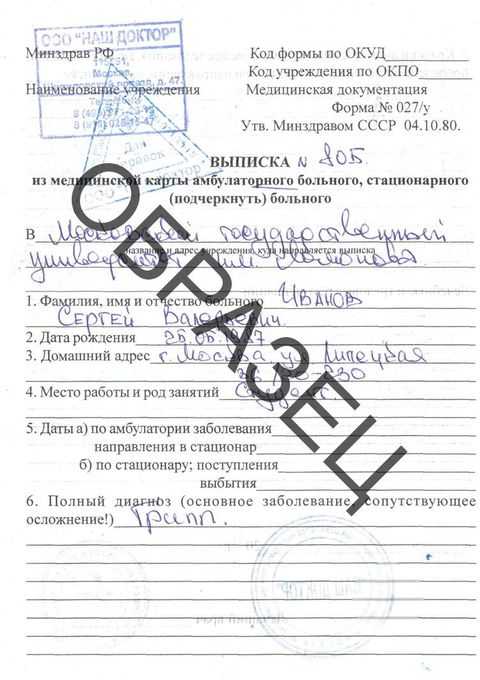 ООО "НАШ ДОКТОР"
Москва,
Для
справок
Минздрав РФ
Код формы по ОКУД
Код учреждения по ОКПО
Наименование учреждения
Медицинская документация
Форма № 027/у
Утв. Минздравом СССР 04.10.80.
ВЫПИСКА N 805.
из медицинской карты амбулаторного больного, стационарного
(подчеркнуть) больного
В Московский государственный
название и адрес учреждения, куда направляется выписка
университет им. Ломоносова
1. Фамилия, имя и отчество больного Иванов
Сергей Валерьевич.
2. Дата рождения
3. Домашний адрес г. Москва ул. Липецкая
4. Место работы и род занятий Студент
5. Даты а) по амбулатории заболевания
направления в стационар
б) по стационару; поступления
выбытия
6. Полный диагноз (основное заболевание, сопутствующее
осложнение!) Грипп.
ОБРАЗЕЦ